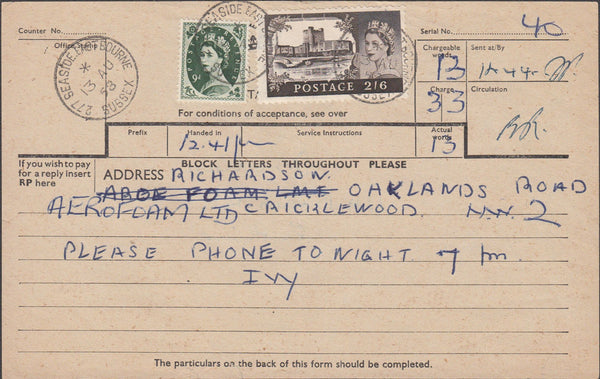 Counter No.
Serial No. 40
Office Stamp
277 SEASIDE EASTBOURNE SUSSEX
* 13 AU 58
SEASIDE EAST
9d
POSTAGE 2/6
Chargeable words 13
Sent at/By
Charge 33
Circulation
For conditions of acceptance, see over
Prefix
Handed in 12.41
Service Instructions
Actual words 13
If you wish to pay for a reply insert RP here
BLOCK LETTERS THROUGHOUT PLEASE
ADDRESS RICHARDSON
ABOE FOAM LMT OAKLANDS ROAD
AEROFOAM LTD CRICKLEWOOD. NW. 2
PLEASE PHONE TO NIGHT 7 pm.
IVY
The particulars on the back of this form should be completed.